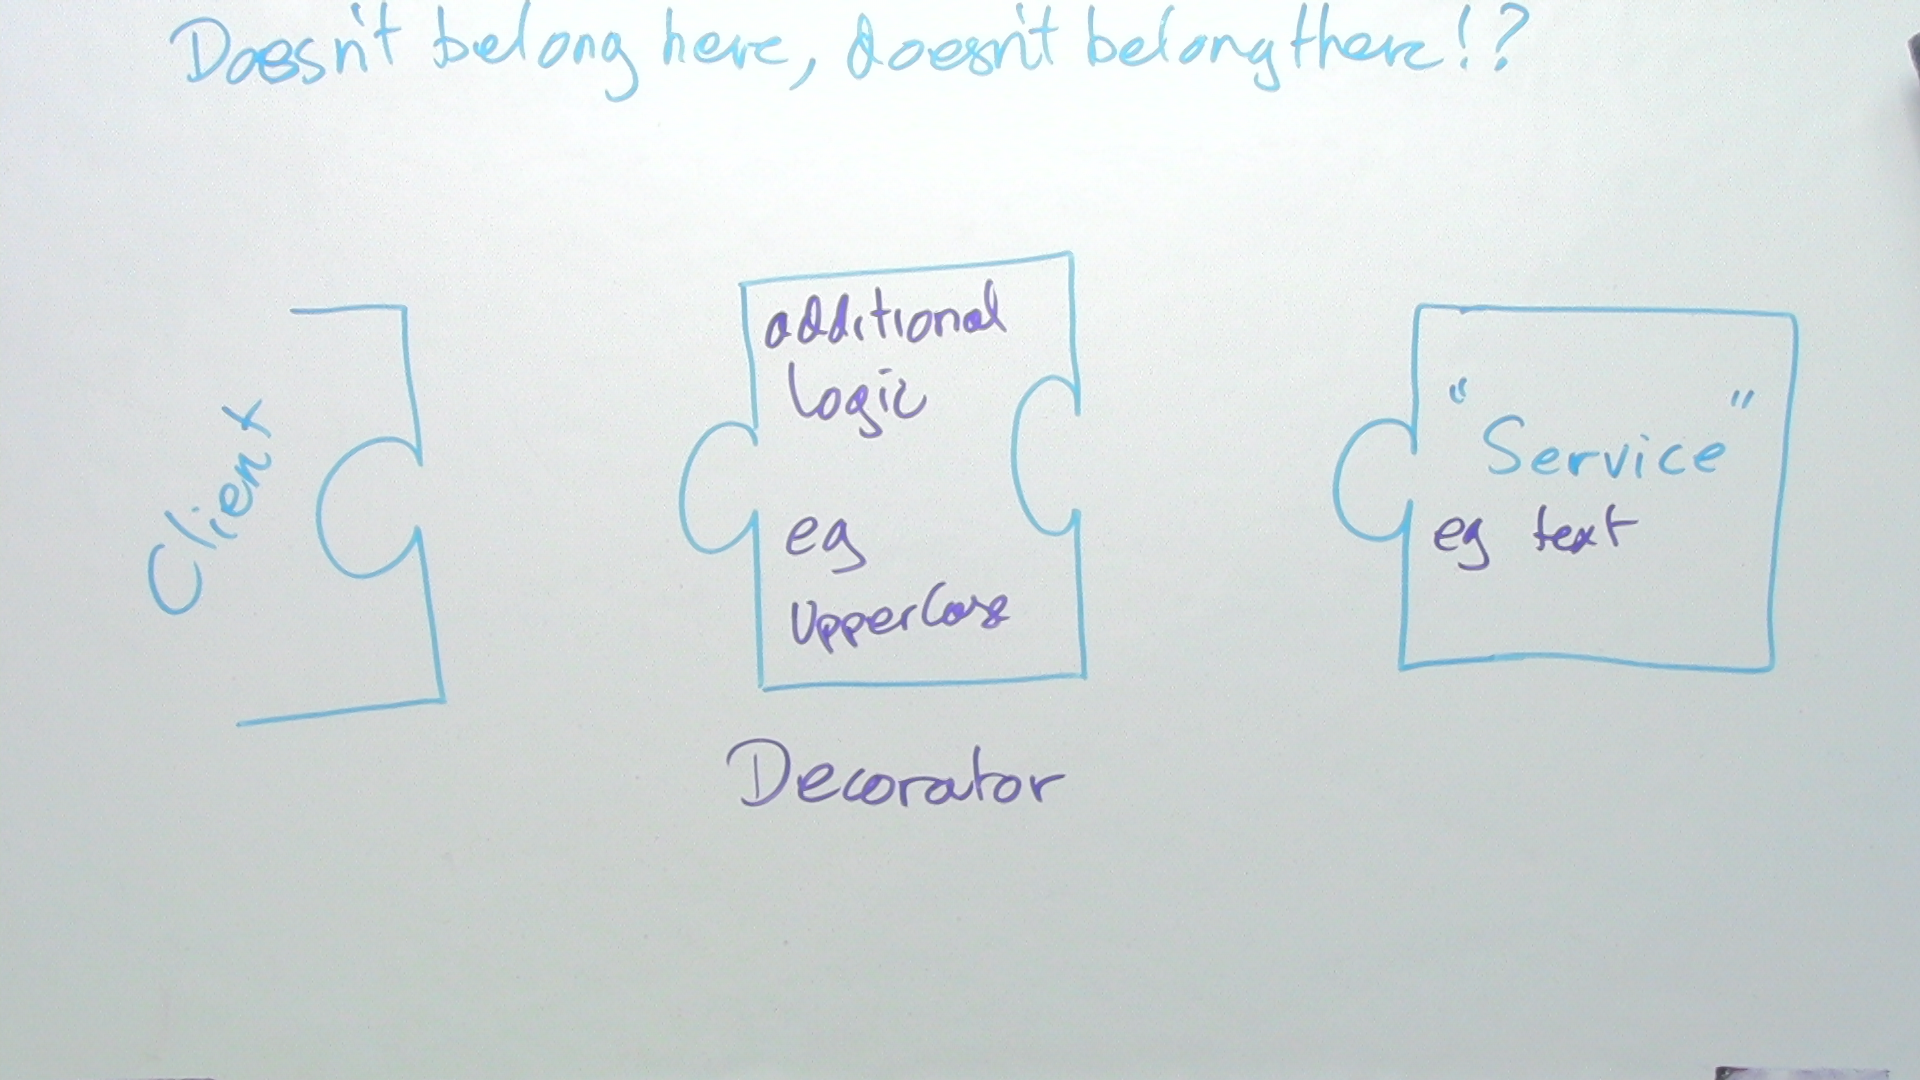 Doesn't belong here, doesn't belong there!?
Client
additional
logic
eg
UpperCase
Decorator
" "
Service
eg text